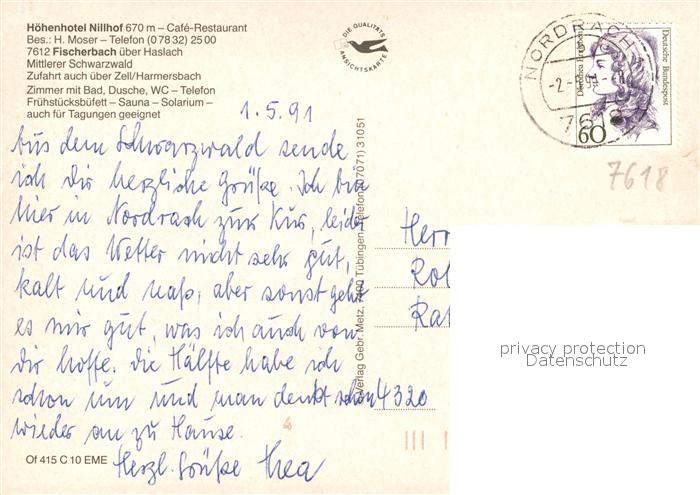 Höhenhotel Nillhof 670 m – Café-Restaurant
Bes.: H. Moser – Telefon (0 78 32) 25 00
7612 Fischerbach über Haslach
Mittlerer Schwarzwald
Zufahrt auch über Zell/Harmersbach
Zimmer mit Bad, Dusche, WC – Telefon
Frühstücksbüfett – Sauna – Solarium –
auch für Tagungen geeignet
DIE QUALITÄTS
ANSICHTSKARTE
NORDRACH
7618
Deutsche Bundespost
60
7618
1.5.91
Aus dem Schwarzwald sende
ich dir herzliche Grüße. Ich bin
hier in Nordrach zur Kur, leider
ist das Wetter nicht sehr gut,
kalt und naß, aber sonst geht
es mir gut, was ich auch von
dir hoffe. die Hälfte habe ich
schon um und man denkt schon
wieder an zu Hause.
Herzl. Grüße Thea
Verlag Gebr. Metz, 7400 Tübingen, Telefon (07071) 31051
Herr
4320
Of 415 C 10 EME
privacy protection
Datenschutz